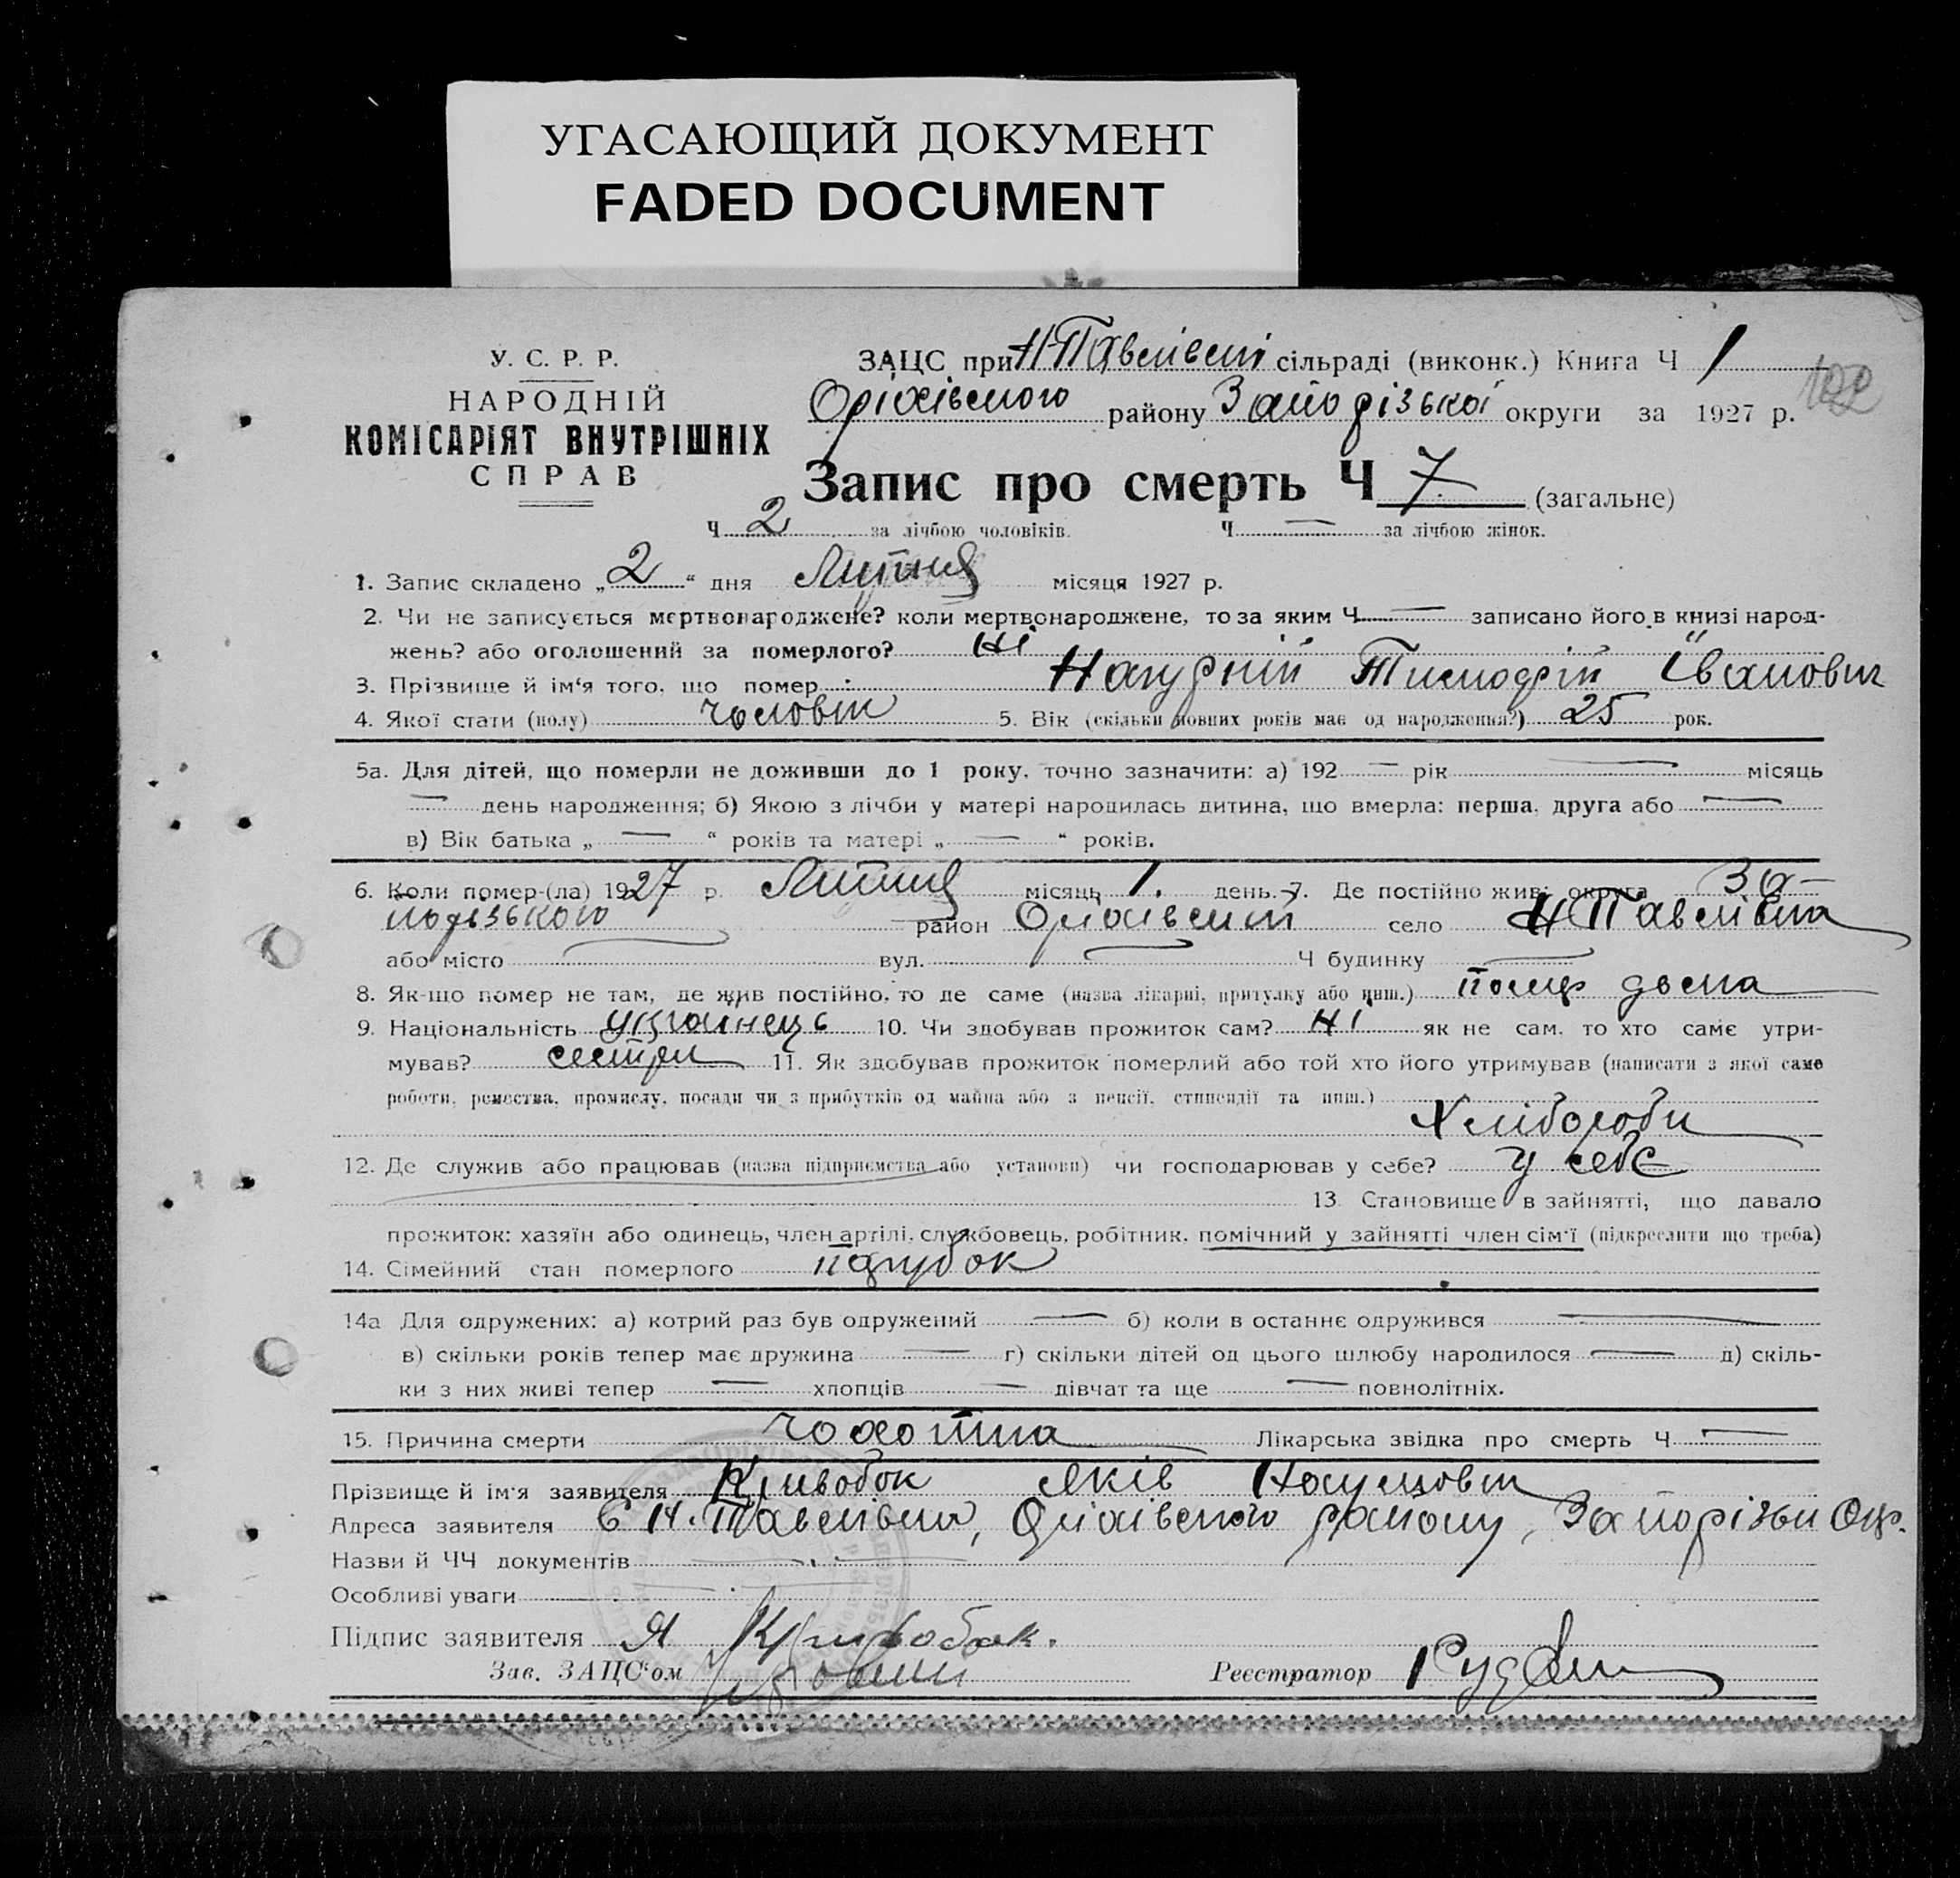 УГАСАЮЩИЙ ДОКУМЕНТ
FADED DOCUMENT
У. С. Р. Р.
НАРОДНІЙ
КОМІСАРІЯТ ВНУТРІШНІХ
СПРАВ
ЗАЦС при Н-Павлівські сільраді (виконк.) Книга Ч 1
102
Оріхівського району Запорізької округи за 1927 р.
Запис про смерть Ч 7 (загальне)
Ч 2 за лічбою чоловіків. Ч — за лічбою жінок.
1. Запис складено „2“ дня Лютня місяця 1927 р.
2. Чи не записується мертвонароджене? коли мертвонароджене, то за яким Ч — записано його в книзі народ-
жень? або оголошений за померлого? Ні
3. Прізвище й ім'я того, що помер Нагурній Тимофій Іванович
4. Якої стати (полу) чоловік 5. Вік (скільки повних років має од народження?) 25 рок.
5а. Для дітей, що померли не доживши до 1 року, точно зазначити: а) 192 — рік — місяць
— день народження; б) Якою з лічби у матері народилась дитина, що вмерла: перша, друга або —
в) Вік батька „ — “ років та матері „ — “ років.
6. Коли помер-(ла) 1927 р. Лютня місяць 1. день. 7. Де постійно жив: округа За-
порізького район Оріхівський село Н Павлівка
або місто — вул. — Ч будинку —
8. Як-що помер не там, де жив постійно, то де саме (назва лікарні, притулку або инш.) помер дома
9. Національність Українець 10. Чи здобував прожиток сам? Ні як не сам, то хто саме утри-
мував? сестри 11. Як здобував прожиток померлий або той хто його утримував (написати з якої саме
роботи, ремества, промислу, посади чи з прибутків од майна або з пенсії, стипендії та инш.)
Хлібороби
12. Де служив або працював (назва підприємства або установи) чи господарював у себе? у себе
13. Становище в зайнятті, що давало
прожиток: хазяїн або одинець, член артілі, службовець, робітник, помічний у зайнятті член сім'ї (підкреслити що треба)
14. Сімейний стан померлого парубок
14а Для одружених: а) котрий раз був одружений — б) коли в останнє одружився —
в) скільки років тепер має дружина — г) скільки дітей од цього шлюбу народилося — д) скіль-
ки з них живі тепер — хлопців — дівчат та ще — повнолітніх.
15. Причина смерти чахотка Лікарська звідка про смерть Ч —
Прізвище й ім'я заявителя Кривобок Яків Наумович
Адреса заявителя С Н. Павлівка, Оріхівського району, Запорізьк Окр.
Назви й ЧЧ документів —
Особливі уваги —
Підпис заявителя Я Кривобок.
Зав. ЗАЦС'ом Реєстратор